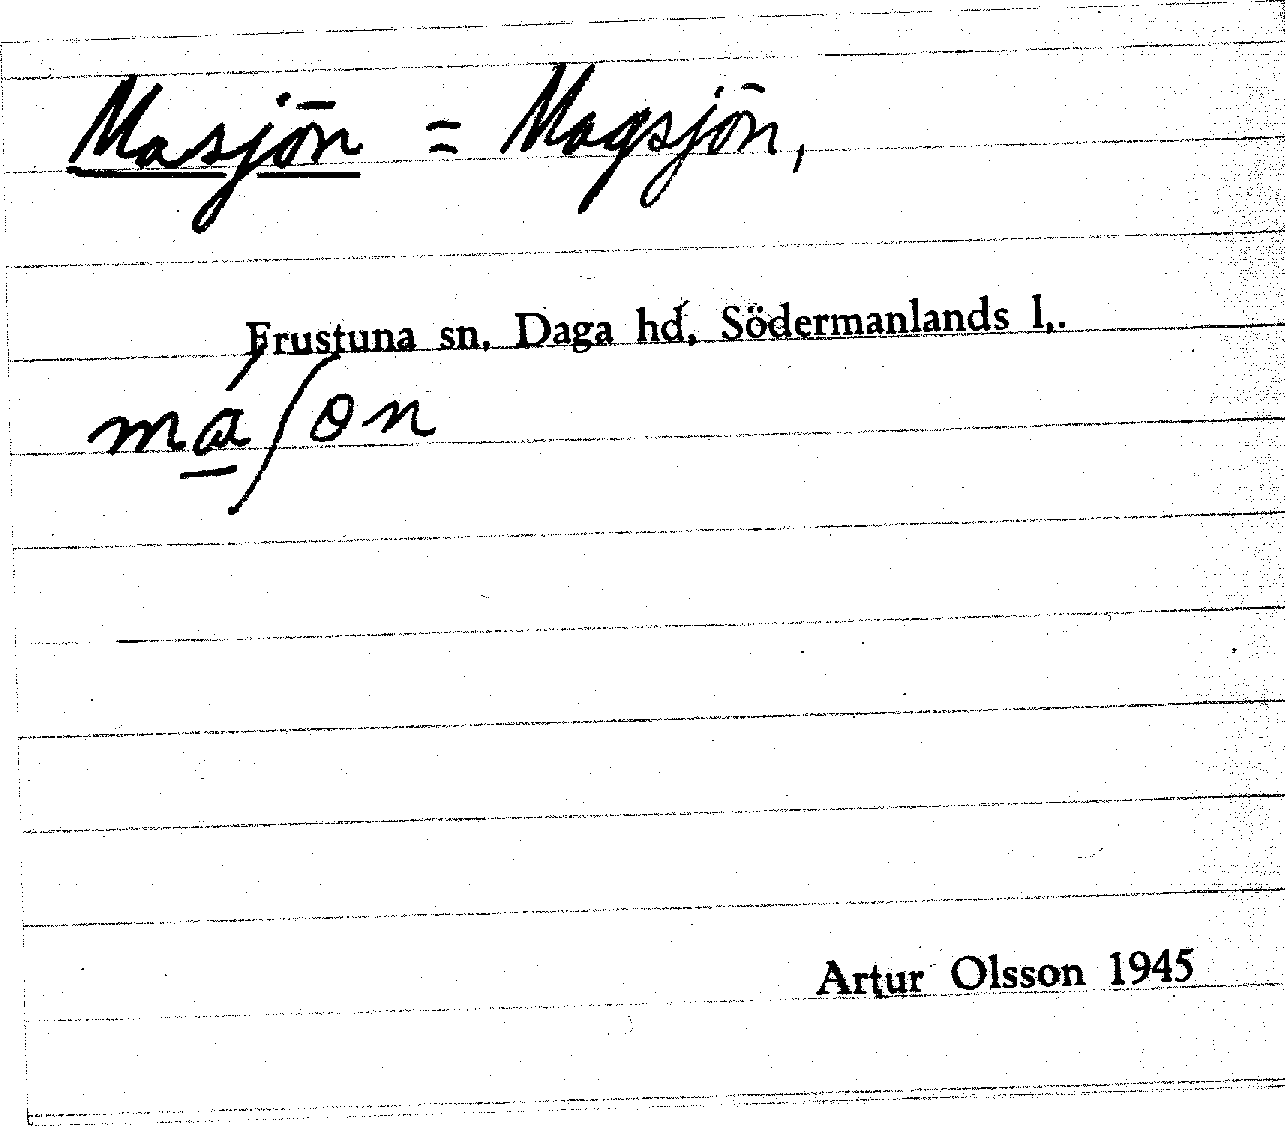 Masjön = Magsjön,
Frustuna sn, Daga hd, Södermanlands l,.
má̱ʃɵn
Artur Olsson 1945